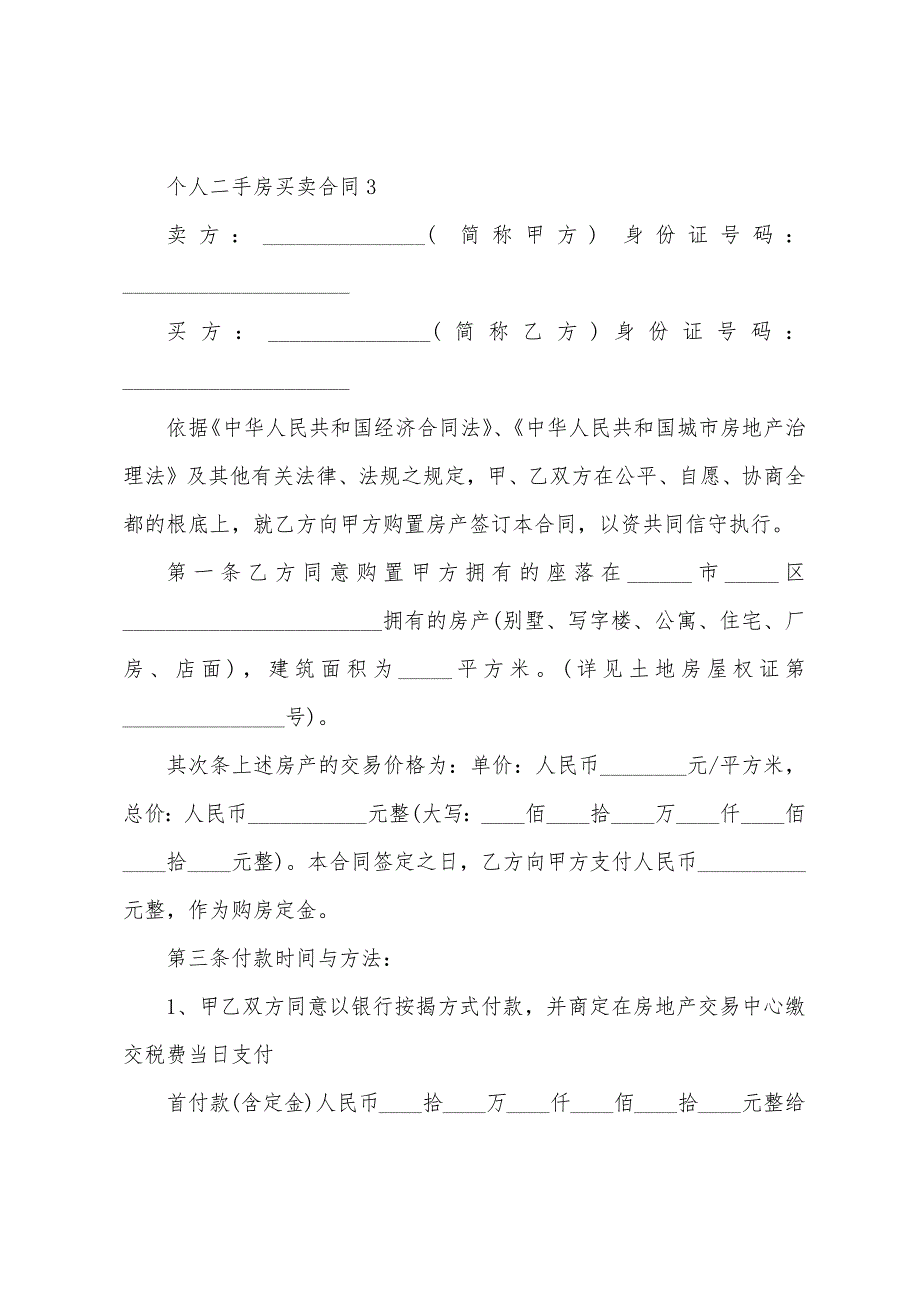 个人二手房买卖合同3
卖方：_______________(简称甲方)身份证号码：
_____________________
买方：_______________(简称乙方)身份证号码：
_____________________
依据《中华人民共和国经济合同法》、《中华人民共和国城市房地产治
理法》及其他有关法律、法规之规定，甲、乙双方在公平、自愿、协商全
都的根底上，就乙方向甲方购置房产签订本合同，以资共同信守执行。
第一条乙方同意购置甲方拥有的座落在______市_____区
________________________拥有的房产(别墅、写字楼、公寓、住宅、厂
房、店面)，建筑面积为_____平方米。(详见土地房屋权证第
_______________号)。
其次条上述房产的交易价格为：单价：人民币________元/平方米，
总价：人民币___________元整(大写：____佰____拾____万____仟____佰
____拾____元整)。本合同签定之日，乙方向甲方支付人民币__________
元整，作为购房定金。
第三条付款时间与方法：
1、甲乙双方同意以银行按揭方式付款，并商定在房地产交易中心缴
交税费当日支付
首付款(含定金)人民币____拾____万____仟____佰____拾____元整给